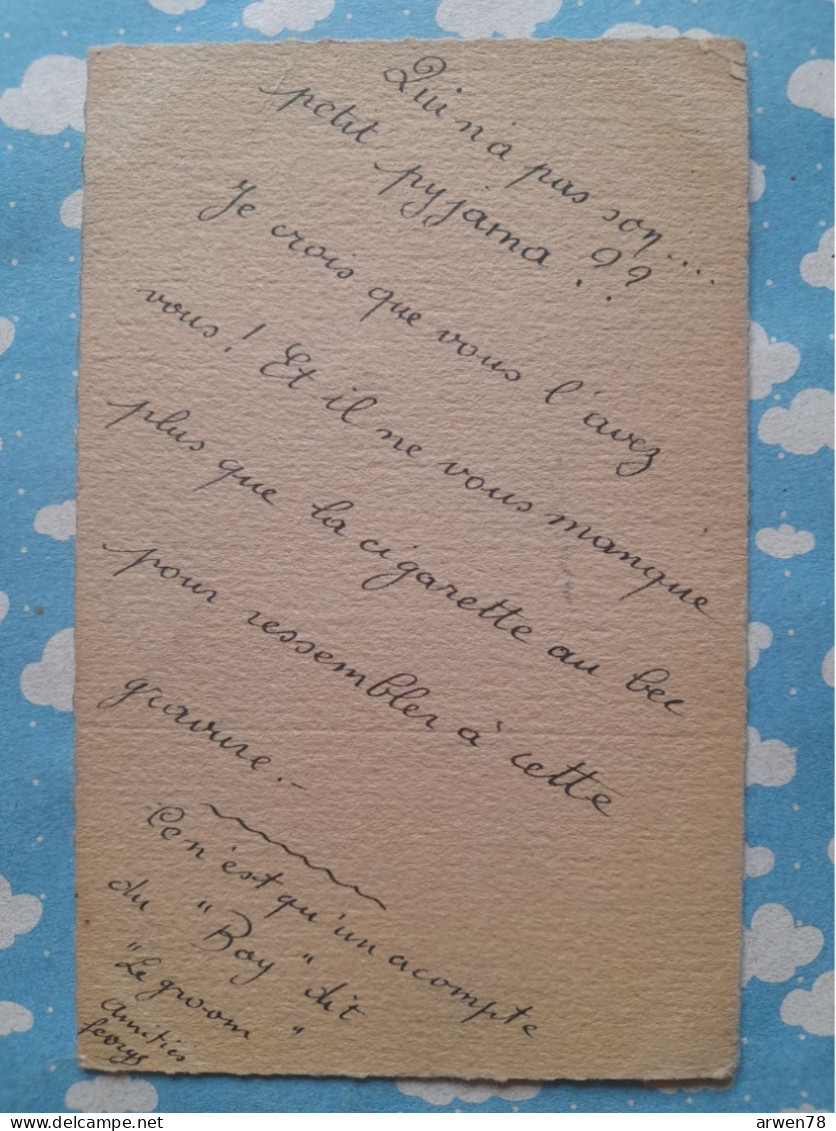 Qui n'a pas son....
petit pyjama ??
Je crois que vous l'avez
vous! Et il ne vous manque
plus que la cigarette au bec
pour ressembler à cette
gravure.-
Ce n'est qu'un acompte
du "Boy" dit
"Le groom"
Amitiés
Georgs
delcampe.net
arwen78